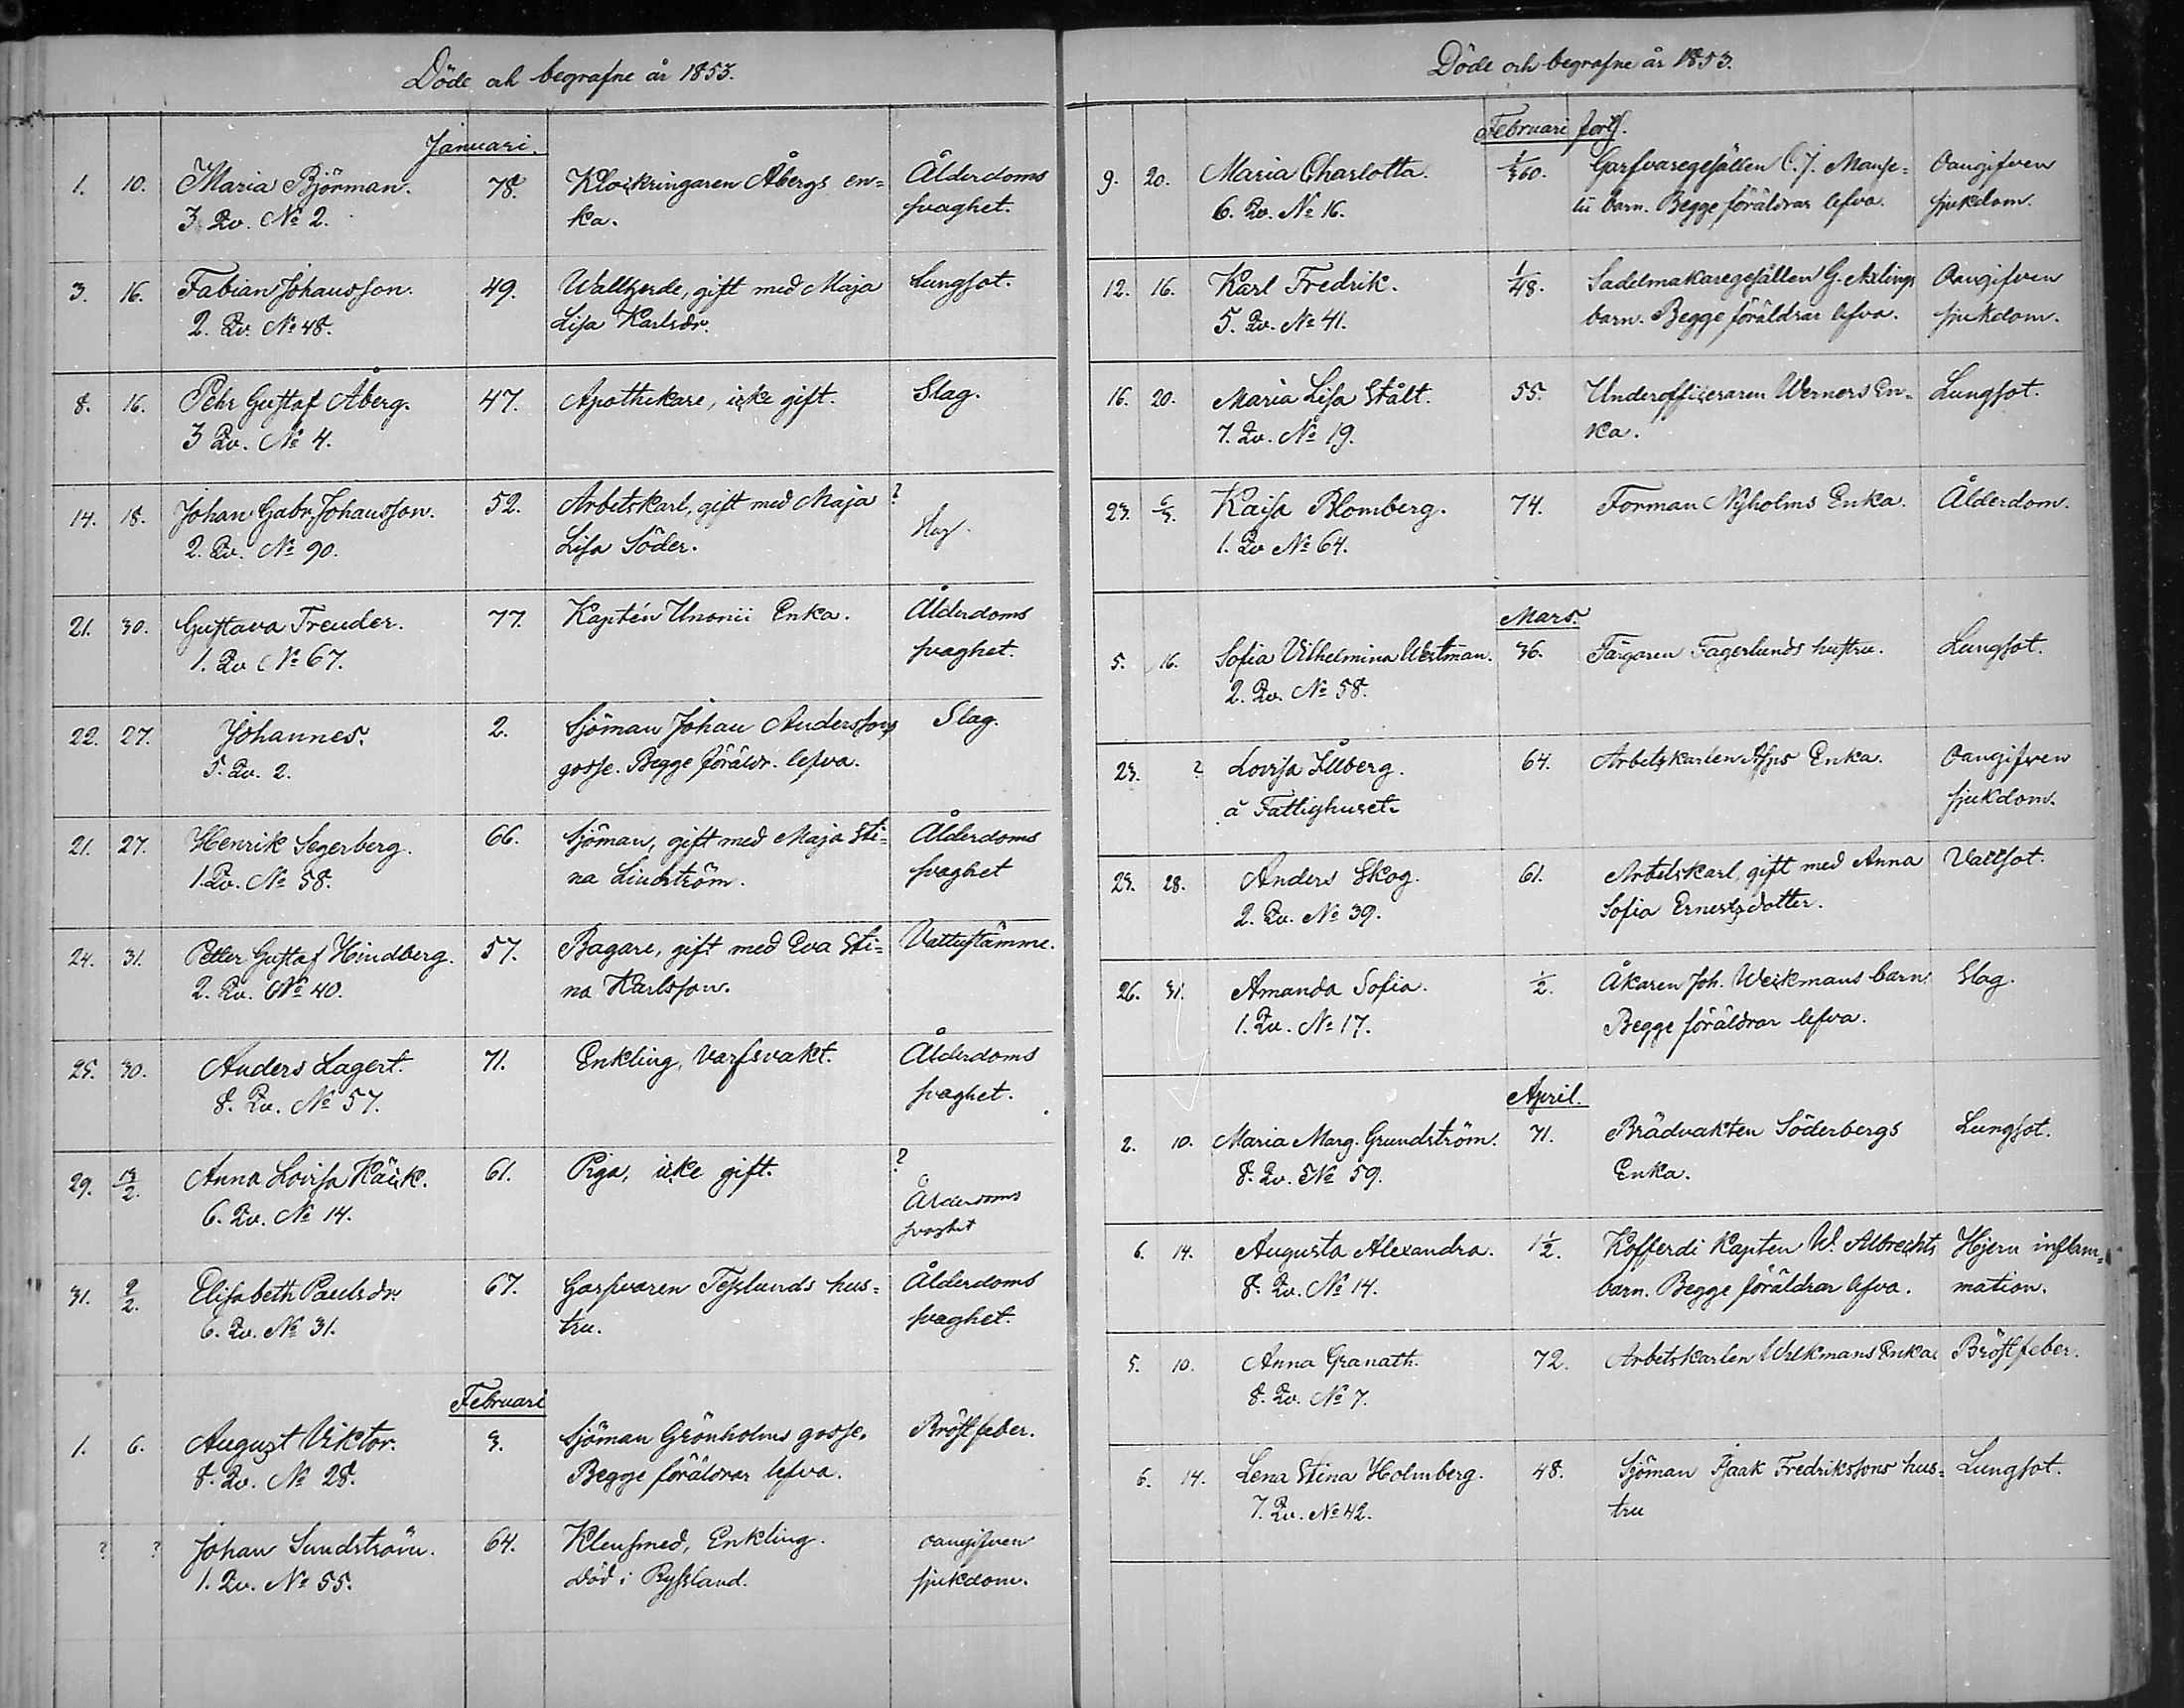 Döde och begrafne år 1853.
Januari.
1. 10. Maria Björman. 78. Klockringaren Åbergs en= Ålderdoms
3. Qv. No 2. ka. svaghet.
3. 16. Fabian Johansson. 49. Wallherde, gift med Maja Lungsot.
2. Qv. No 48. Lisa Karlsdr.
8. 16. Pehr Gustaf Åberg. 47. Apothekare, icke gift. Slag.
3 Qv. No 4.
14. 18. Johan Gabr. Johansson. 52. Arbetskarl, gift med Maja ?
2. Qv. No 90. Lisa Söder. Slag
21. 30. Gustava Freuder. 77. Kaptén Unonii Enka. Ålderdoms
1. Qv No 67. svaghet.
22. 27. Johannes. 2. Sjöman Johan Anderssons Slag.
5. Qv. 2. gosse. Begge föräldr. lefva.
21. 27. Henrik Segerberg. 66. Sjöman, gift med Maja Sti= Ålderdoms
1. Qv. No 58. na Lindström. svaghet
24. 31. Petter Gustaf Hindberg. 57. Bagare, gift med Eva Sti= Vattustämme.
2. Qv. No 40. na Karlsson.
25. 30. Anders Lagert. 71. Enkling, Varfsvakt. Ålderdoms
8. Qv. No 57. svaghet.
29. 13/2. Anna Lovisa Käck. 61. Piga, icke gift. ?
6. Qv. No 14. Ålderdoms
svaghet
31. 2/2. Elisabeth Paulsdr. 67. Garfvaren Tesslunds hus= Ålderdoms
6. Qv. No 31. tru. svaghet.
Februari
1. 6. August Viktor. 3. Sjöman Grönholms gosse. Bröstfeber.
8. Qv. No 28. Begge föräldrar lefva.
? ? Johan Sundström. 64. Klensmed, Enkling. oangifven
1. Qv. No 55. Död i Ryssland. sjukdom.
Döde och begrafne år 1853.
Februari forts.
9. 20. Maria Charlotta. 1/360. Garfvaregesällen C. J. Manse= Oangifven
6. Qv. No 16. lii barn. Begge föräldrar lefva. sjukdom.
12. 16. Karl Fredrik. 1/48. Sadelmakaregesällen G. Axlings Oangifven
5. Qv. No 41. barn. Begge föräldrar lefva. sjukdom.
16. 20. Maria Lisa Stålt. 55. Underofficeraren Werners En= Lungsot.
7. Qv. No 19. ka.
23. 6/3. Kaisa Blomberg. 74. Forman Nyholms Enka. Ålderdom.
1. Qv No 64.
Mars.
5. 16. Sofia Vilhelmina Westman. 36. Färgaren Fagerlunds hustru. Lungsot.
2. Qv. No 58.
23. ? Lovisa Illberg. 64. Arbetskarlen Enka. Oangifven
å Fattighuset. sjukdom.
23. 28. Anders Skog. 61. Arbetskarl, gift med Anna Vattsot.
2. Qv. No 39. Sofia Ernestsdotter.
26. 31. Amanda Sofia. 1/2. Åkaren Joh. Weckmans barn. Slag.
1. Qv. No 17. Begge föräldrar lefva.
April.
2. 10. Maria Marg. Grundström. 71. Brädvakten Söderbergs Lungsot.
8. Qv. No 59. Enka.
6. 14. Augusta Alexandra. 1 1/2. Kofferdi Kapten W. Albrechts Hjern inflam=
8. Qv. No 14. barn. Begge föräldrar lefva. mation.
5. 10. Anna Granath. 72. Arbetskarlen Wilkmans Enka. Bröstfeber.
8. Qv. No 7.
6. 14. Lena Stina Holmberg. 48. Sjöman Isaak Fredrikssons hus= Lungsot.
7. Qv. No 42. tru